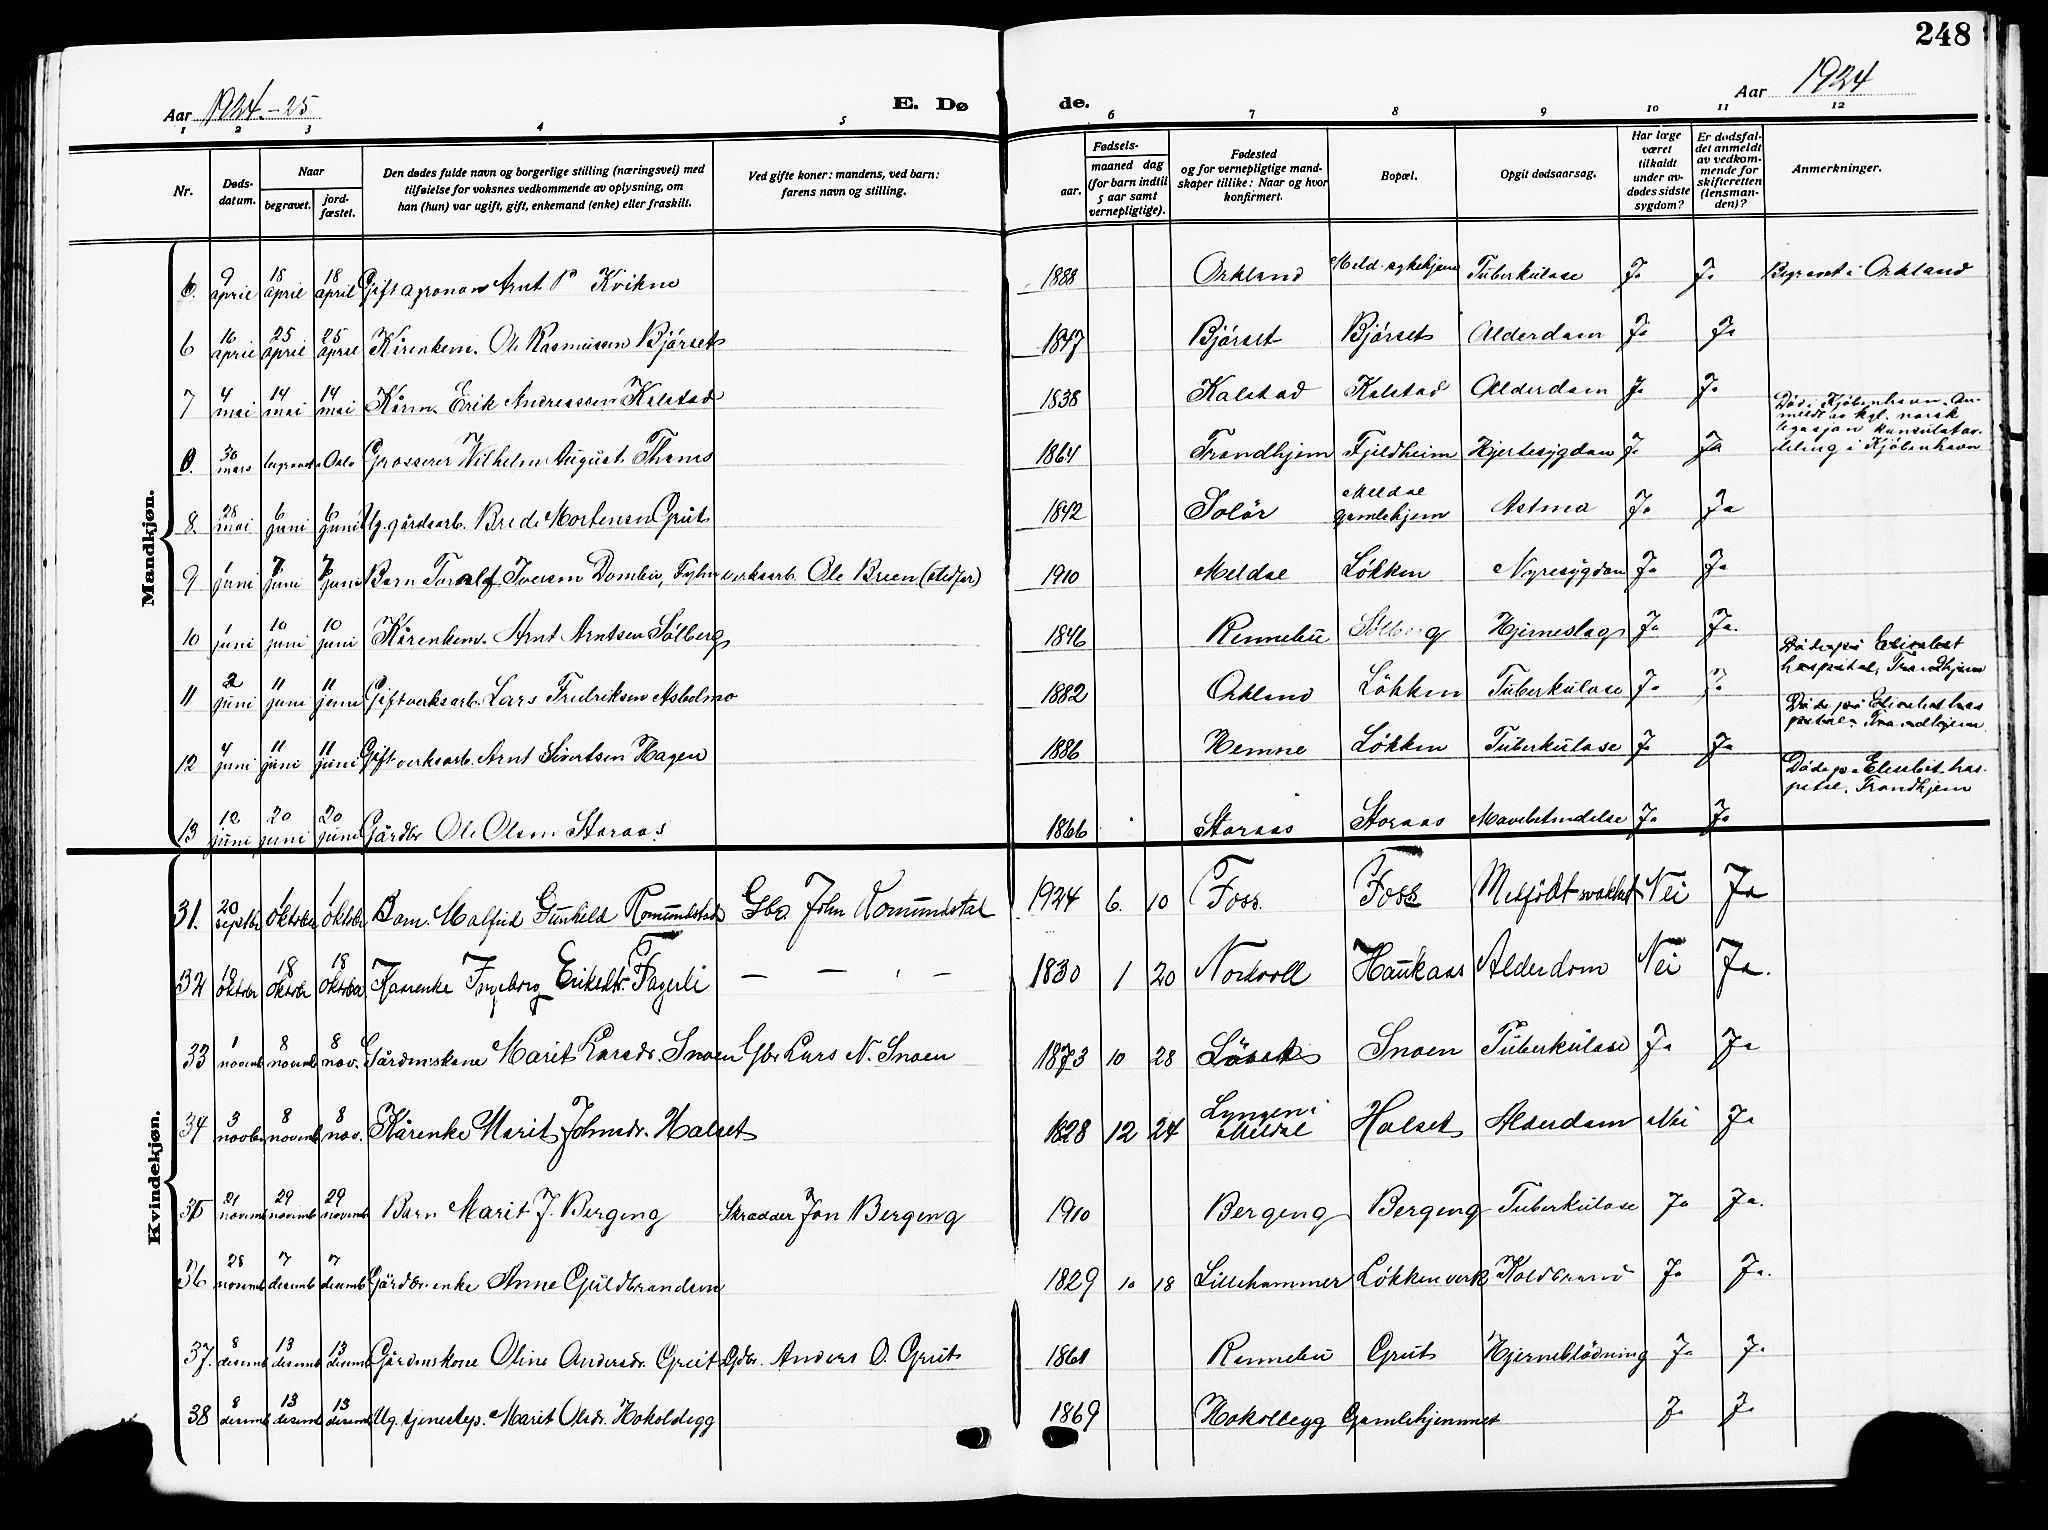 248
Aar 1924.-25
E. Dø de.
Aar 1924
1 2 3 4 5 6 7 8 9 10 11 12
Nr.
Døds-
datum.
Naar
begravet.
jord-
fæstet.
Den dødes fulde navn og borgerlige stilling (næringsvei) med
tilføielse for voksnes vedkommende av oplysning, om
han (hun) var ugift, gift, enkemand (enke) eller fraskilt.
Ved gifte koner: mandens, ved barn:
farens navn og stilling.
Fødsels-
aar.
maaned dag
(for barn indtil
5 aar samt
vernepligtige).
Fødested
og for vernepligtige mand-
skaper tillike: Naar og hvor
konfirmert.
Bopæl.
Opgit dødsaarsag.
Har læge
været
tilkaldt
under av-
dødes sidste
sygdom?
Er dødsfal-
det anmeldt
av vedkom-
mende for
skifteretten
(lensman-
den)?
Anmerkninger.
Mandkjøn.
6. 9 april 18 april 18 april Gift agronom Arnt P Kvikne 1888 Orkland Meld. sykehjem Tuberkulose Ja Ja Begravet i Orkland
6 16 april 25 april 25 april Kårenkem. Ole Rasmussen Bjørset 1847 Bjørset Bjørset Alderdom Ja Ja
7 4 mai 14 mai 14 mai Kårm. Erik Andreassen Kalstad 1838 Kalstad Kalstad Alderdom Ja Ja
30 mars begravet i Oslo Grosserer Wilhelm August Thams 1864 Trondhjem Fjeldheim Hjertesygdom Ja Ja Død i Kjøbenhavn. An-
meldt av kgl. norsk
legasjon konsulatav-
deling i Kjøbenhavn
8. 28 mai 6 juni 6 juni Ug. gårdsarb. Brede Mortensen Grut 1842 Solør Meldal gamlehjem Astma Ja Ja
9 1 juni 7 juni 7 juni Barn Toralf Iversen Dombu, Fyhn verksarb. Ole Breen (stedfar) 1910 Meldal Løkken Nyresygdom Ja Ja
10 1 juni 10 juni 10 juni Kårenkem. Arnt Arntsen Solberg 1846 Rennebu Solberg Hjerneslag Ja Ja.
11 2 juni 11 juni 11 juni Gift verksarb. Lars Fredriksen Asbolmo 1882 Orkland Løkken Tuberkulose Ja Ja Døde på Elisabet
hospital, Trondhjem
12 4 juni 11 juni 11 juni Gift verksarb. Arnt Sivertsen Hagen 1886 Hemne Løkken Tuberkulose Ja Ja Døde på Elisabet hos
pital. Trondhjem
13 12 juni 20 juni 20 juni Gårdbr Ole Olsen Storaas. 1866 Storaas Storaas Mavebetændelse Ja Ja Døde på Elisabet hos-
pital. Trondhjem
Kvindekjøn.
31. 20 septbr 1 oktober 1 oktober Barn. Malfrid Gunhild Romundstad Gbr. John Romundstad 1924 6 10 Foss. Foss Medfödt svakhet Nei Ja
32 10 oktober 18 oktober 18 oktober Kaarenke Ingeborg Eriksdtr. Fagerli — — — 1830 1 20 Nordvoll Haukaas Alderdom Nei Ja.
33 1 novemb 8 novemb 8 nov. Gårdmskone Marit Larsdr. Snoen Gbr Lars N. Snoen 1873 10 28 Snoen Tuberkulose Ja Ja
34 3 novbr 8 novemb 8 nov. Kårenke Marit Johnsdr. Halset 1828 12 24 Lyngen i Meldal Halset Alderdom Nei Ja
35 21 novemb 29 novemb 29 novemb Barn Marit J. Bergeng Skrædder Jon Bergeng 1910 Bergeng Bergeng Tuberkulose Ja Ja.
36 28 novemb 7 desemb 7 desemb Gårdbr. enke Anne Guldbrandsen 1829 10 18 Lillehammer Løkken verk Koldbrand Ja Ja.
37. 8 desemb 13 desemb 13 desemb Gårdmskone Oline Andersdr. Grut Gdbr. Anders O. Grut 1861 Rennebu Grut Hjerneblödning Ja Ja
38 8 desemb 13 desemb 13 desemb Ug. tjenestep. Marit Olsdr. Hokoldegg 1869 Hokollegg Gamlehjemmet Ja Ja